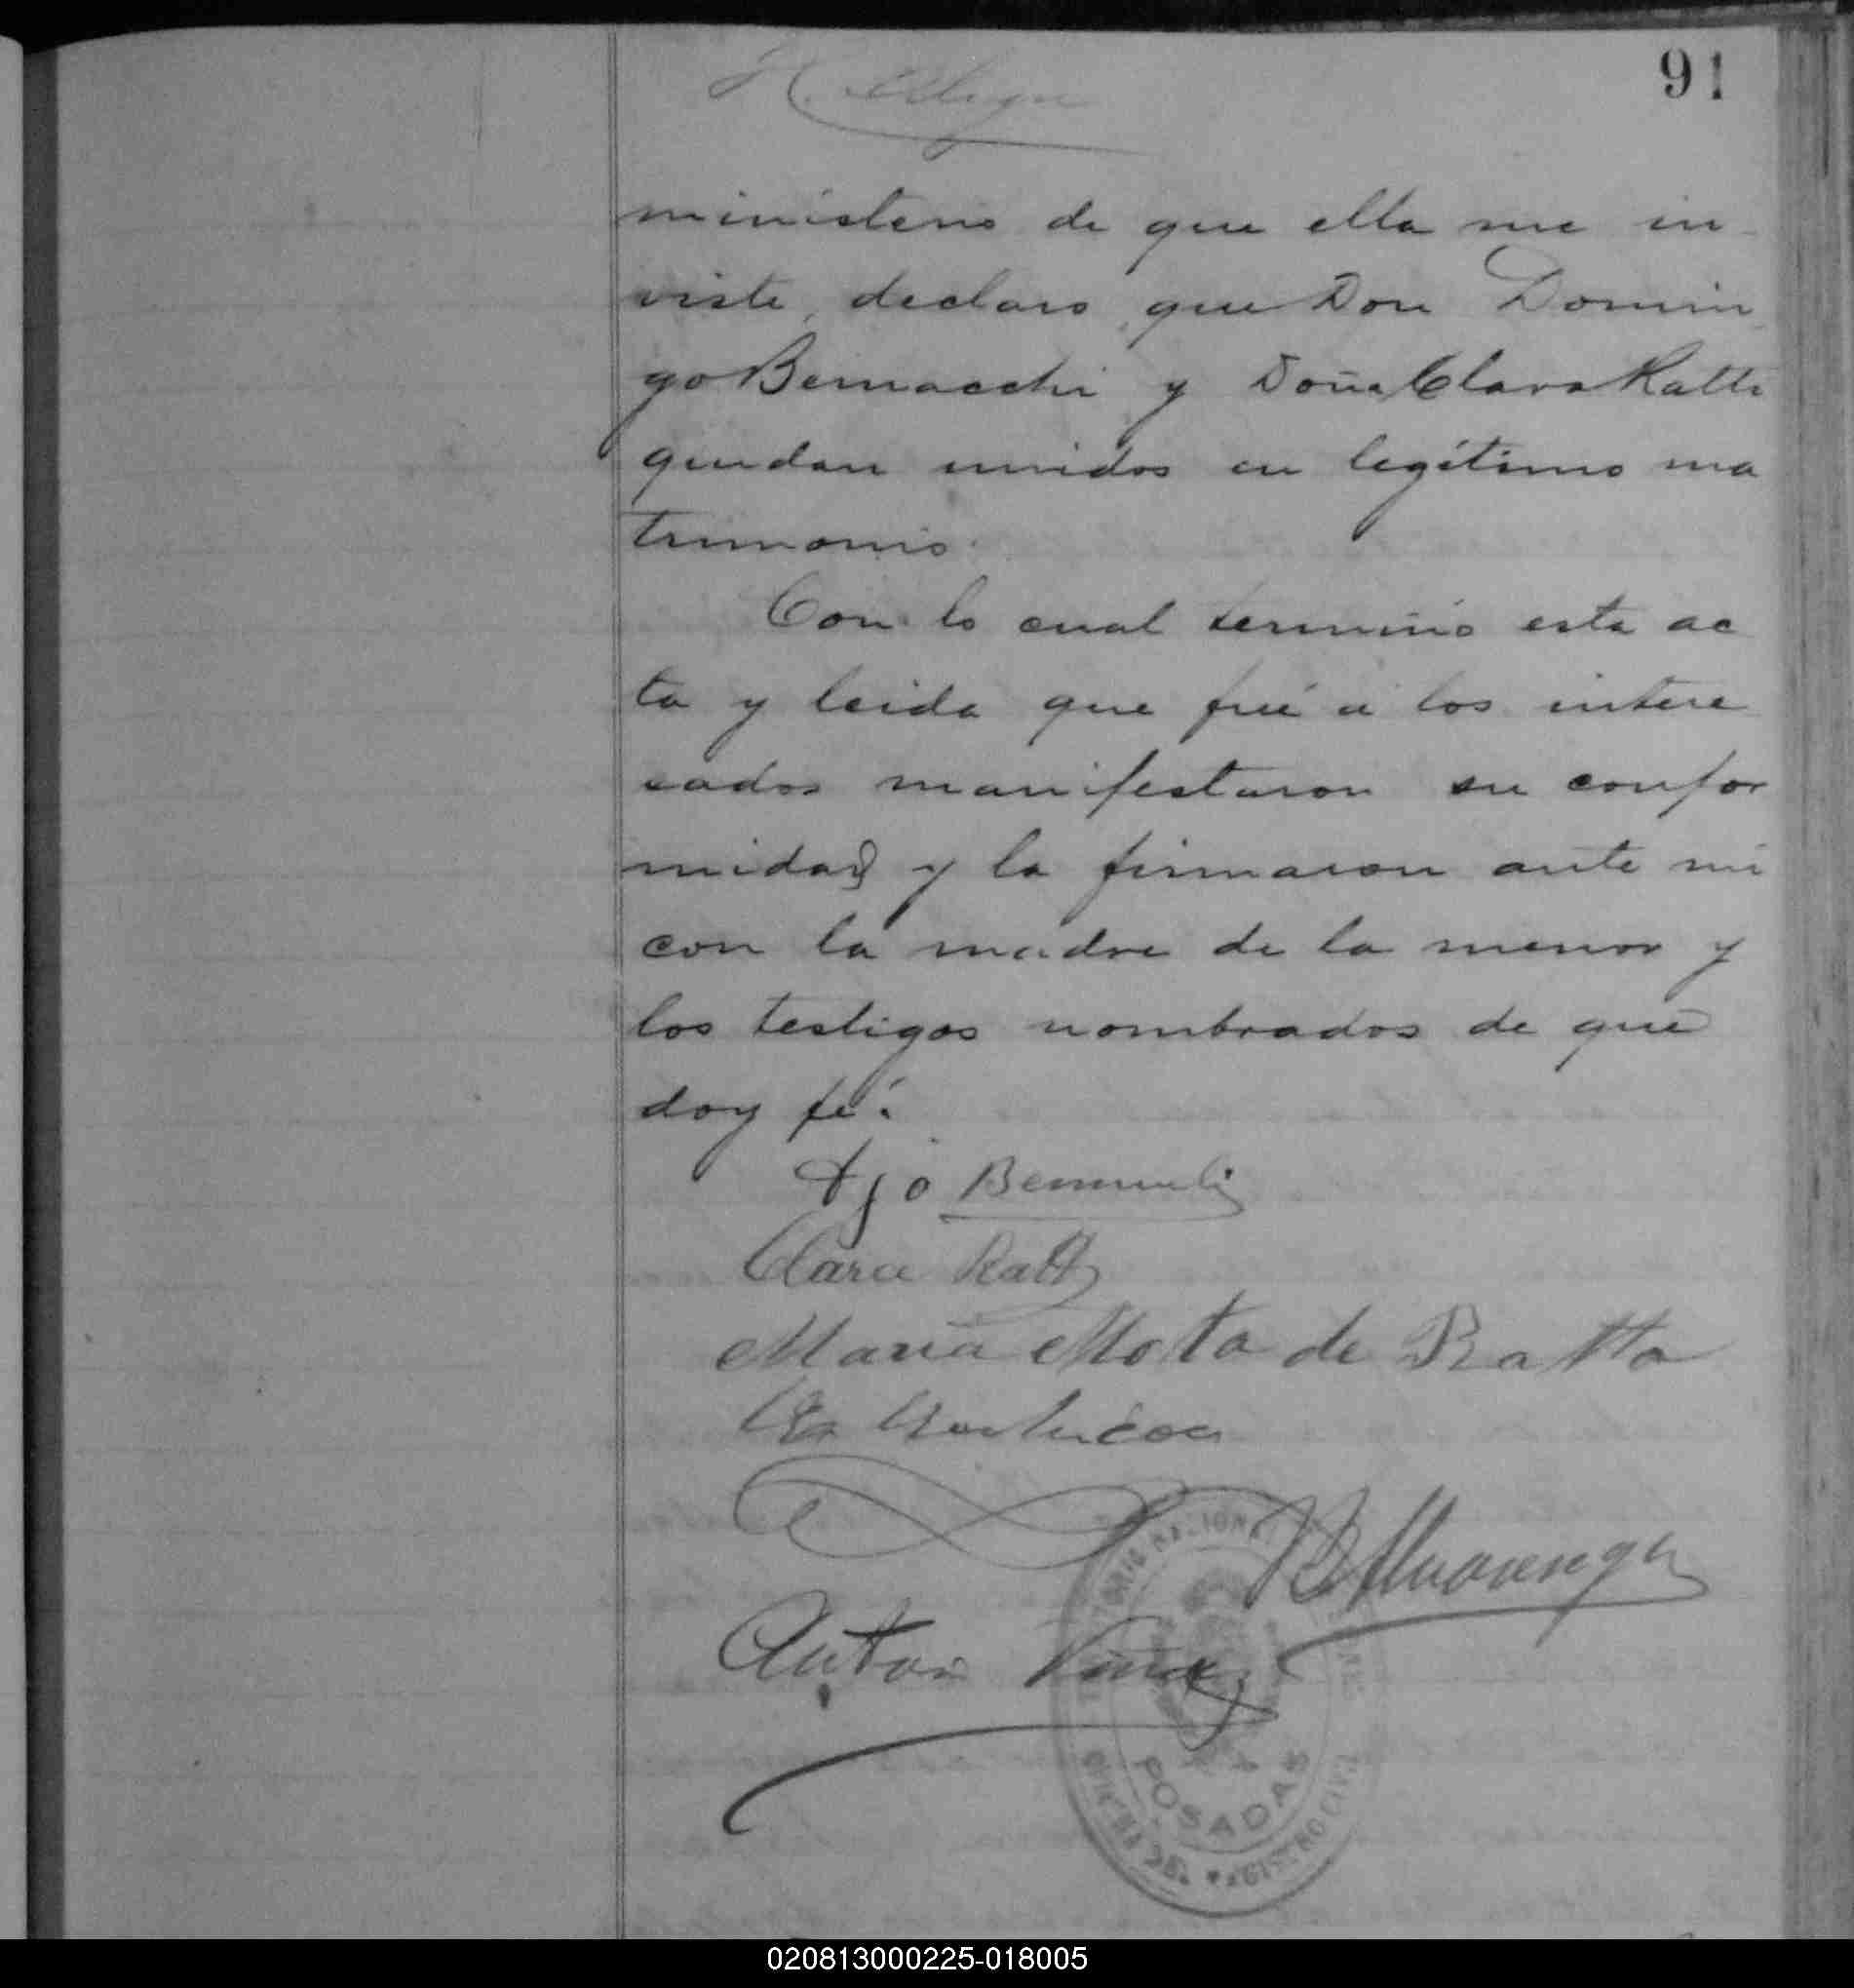 91
ministerio de que ella me in
viste, declaro que Don Domin
go Bernacchi y Doña Clara Ratti
quedan unidos en legítimo ma
trimonio.
Con lo cual terminó esta ac
ta y leida que fué á los intere
sados manifestaron su confor
midad y la firmaron ante mi
con la madre de la menor y
los testigos nombrados de que
doy fé.
Clara Ratti
Maria Mota de Ratto
Anton
POSADAS
REGISTRO CIVIL
020813000225-018005